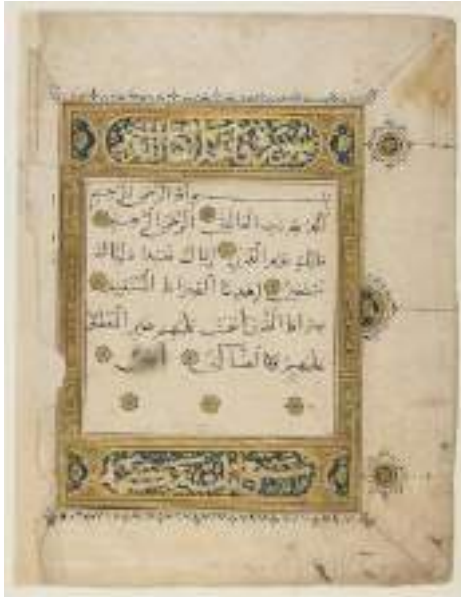 بسم الله الرحمن الرحيم
الحمد لله رب العالمين الرحمن الرحيم
مالك يوم الدين إياك نعبد وإياك
نستعين اهدنا الصراط المستقيم
صراط الذين أنعمت عليهم غير المغضوب
عليهم ولا الضالين امين